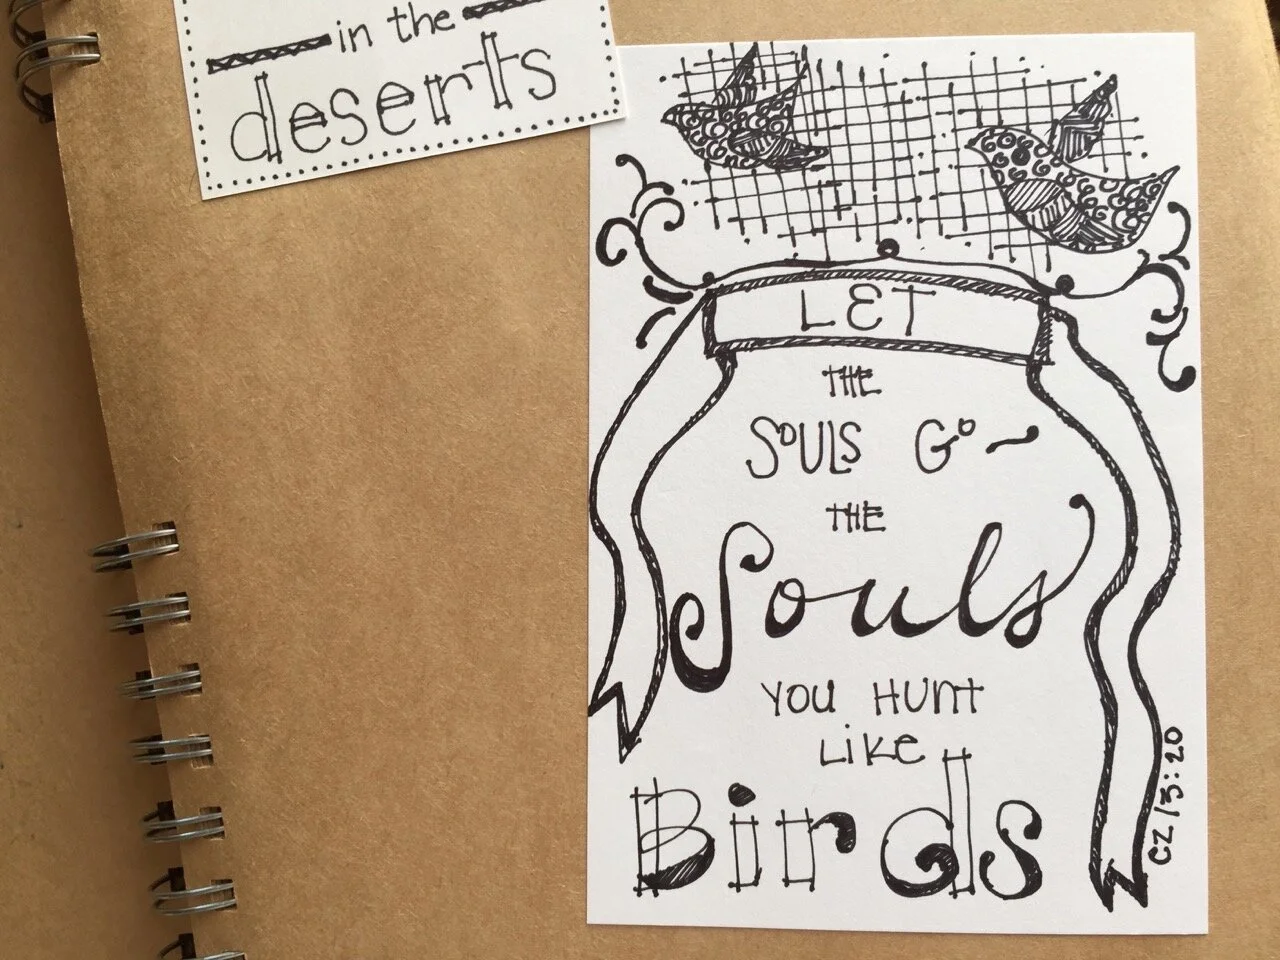 in the
deserts
LET
THE
SOULS GO~
THE
Souls
YOU HUNT
LIKE
Birds
CZ/3:20